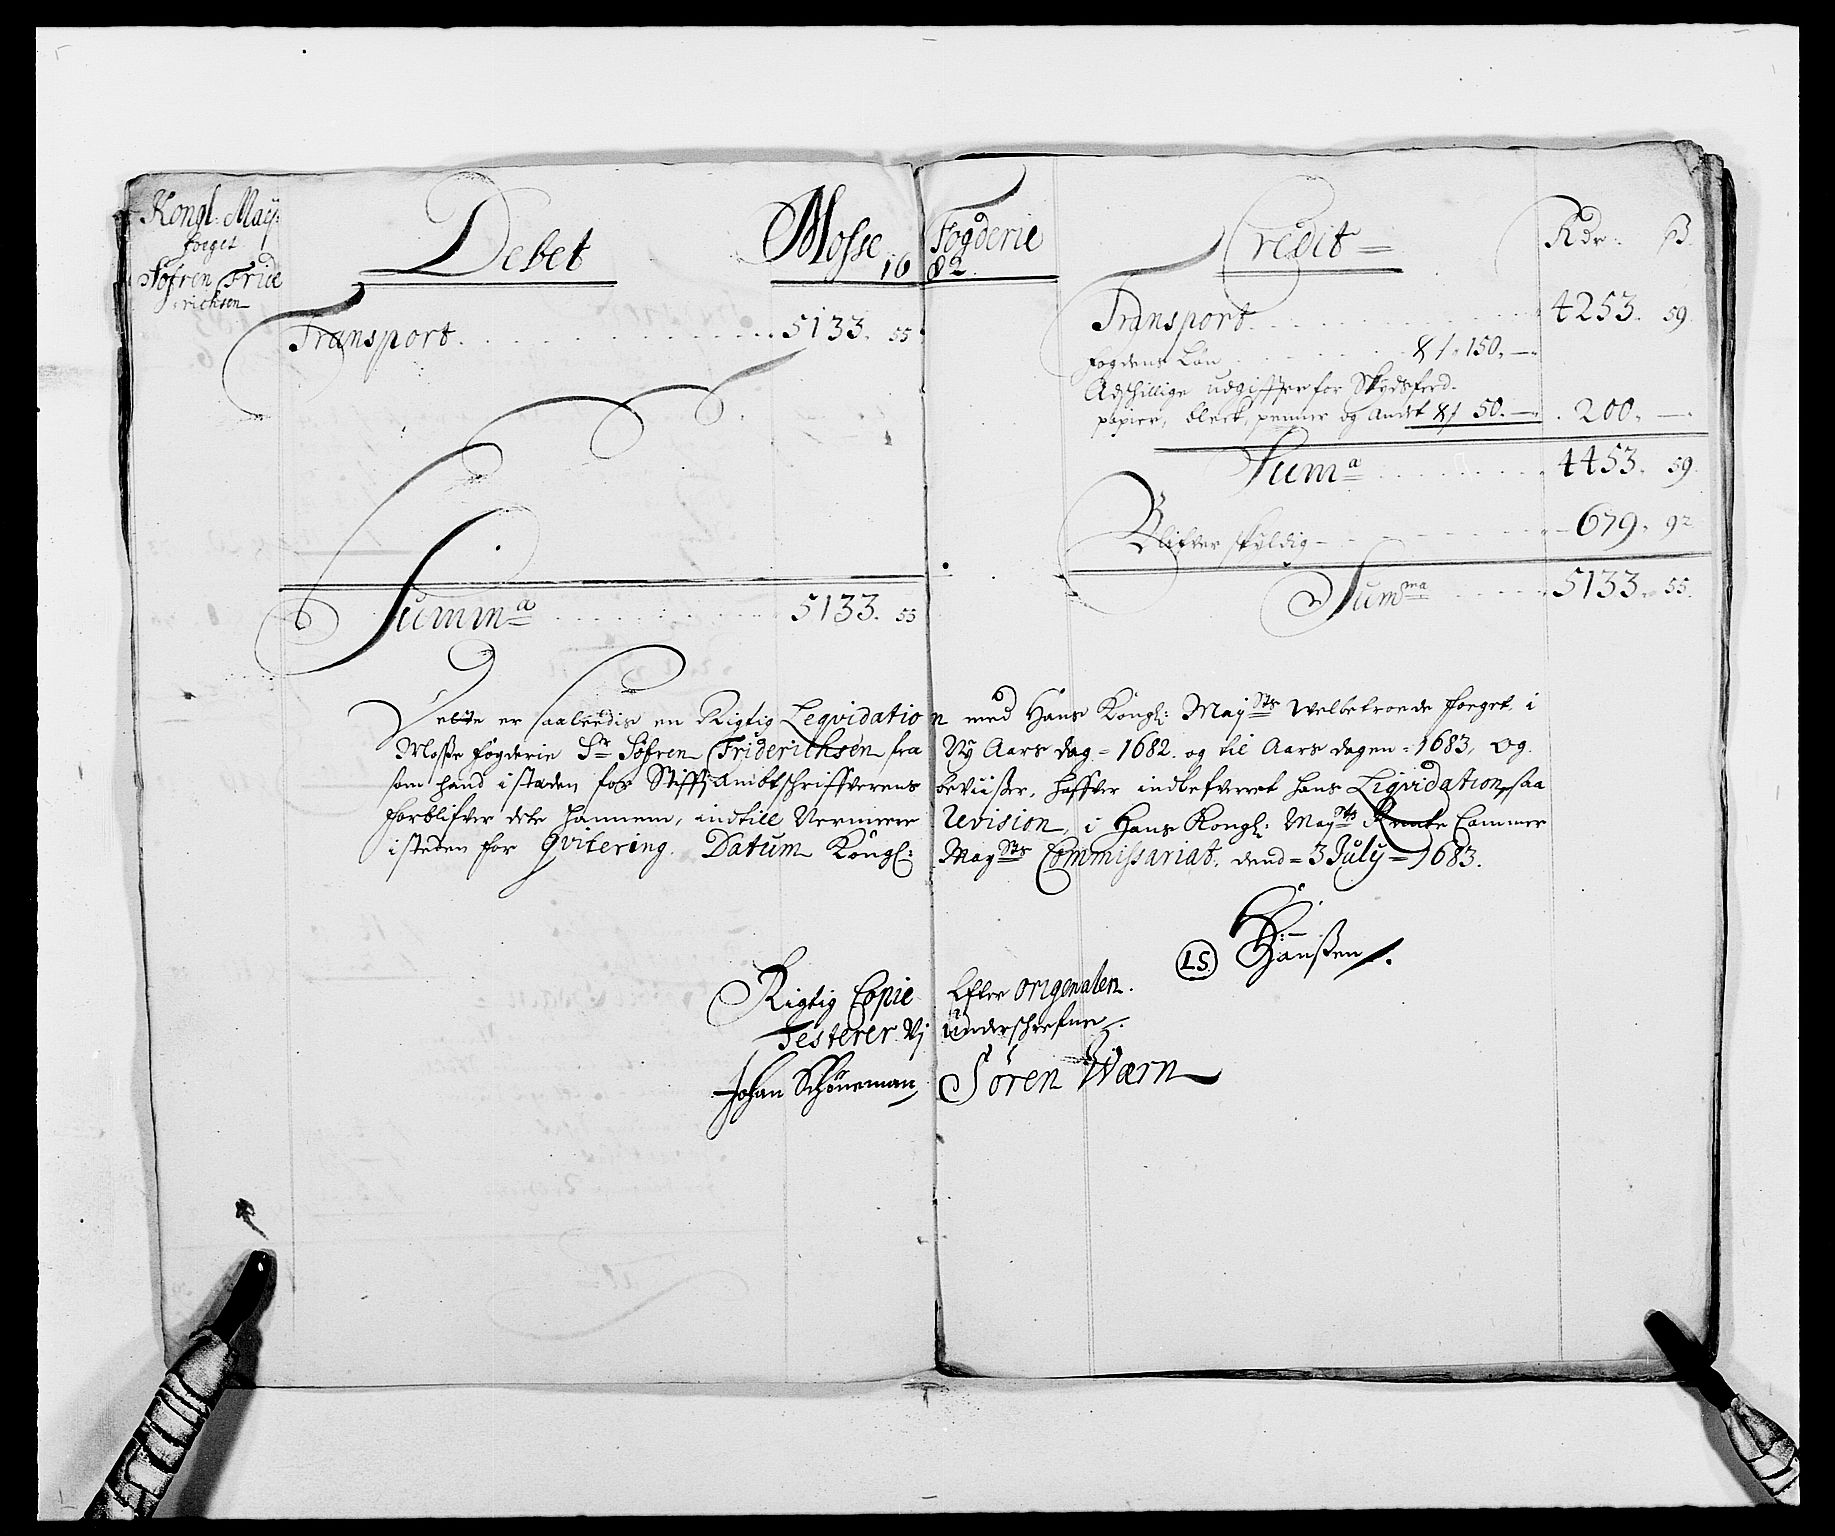 Kongl: May:
foget
Söfren Fride
richsen
Debet
Mosse Fogderie
1682
Credit
Rdr. ß.
Transport 5133. 55
Transport 4253. 59
fogdens Løn 150.
Adschillige udgiffter for Skydsferd.
papier, bleck, penner og andet 50. 200.
Sum a 4453. 59
Blifver skyldig 679. 92
Summ a 5133. 55
Sum ma 5133. 55
Dette er saaleedis en Rigtig Leqvidation med Hans Kongl: May sts welbetroede foeget, i
Mosse fogderie Sr Söfren Friderichsen fra Ny Aars dag 1682. og til Aars dagen 1683, og
som hand i staden for Stifft Ambtschriffverens beviiser, haffver indlefverret hans Liqvidation, saa
forblifver dete hannem, indtill Vermeere Revision, i Hans Kongl: May sts Rente Cammer
isteden for Qvitering. Datum Kongl: May sts Commissariat. dend 3 July 1683.
LS. Hanßen
Rigtig Copie Efter origenalen.
Testerer Vj underschrefne
Johan Schöneman Søren Wærn